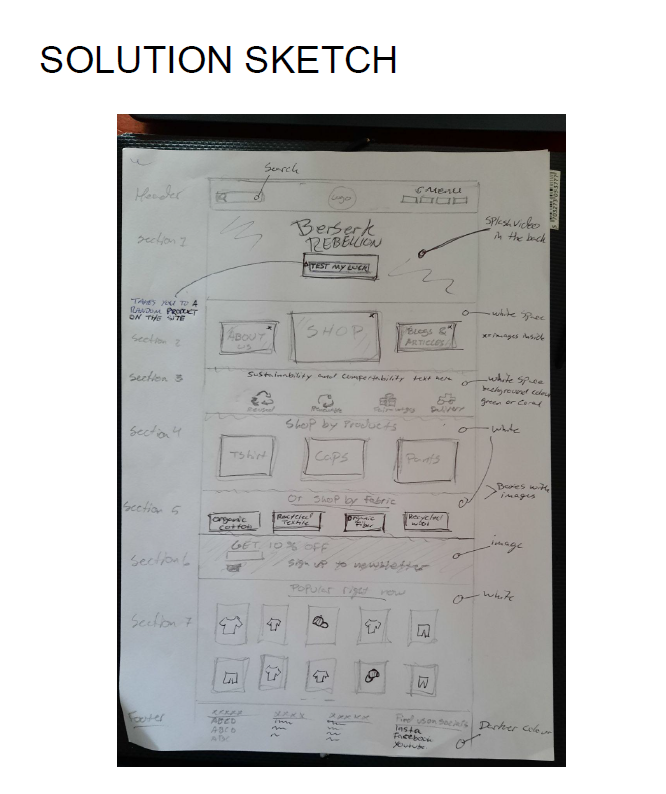 SOLUTION SKETCH
Search
Header
Logo
Menu
Section 1
Berserk
REBELLION
TEST MY LUCK
Splash video
in the back
TAKES YOU TO A
RANDOM PRODUCT
ON THE SITE
Section 2
ABOUT
US
SHOP
BLOGS &
ARTICLES
white space
x = images inside
Section 3
Sustainability and Comfortability text here
white space
background colour
green or Coral
Delivery
Section 4
Shop by Products
TShirt
Caps
Pants
white
Boxes with
images
Section 5
Or Shop by fabric
Organic
cotton
Recycled
Textile
Organic
Fiber
Recycled
wool
Section 6
GET 10% OFF
sign up to newsletter
image
Popular right now
white
Section 7
Footer
xxxxx
xxxx
xxxxx
Find us on socials
Insta
Facebook
Youtube
Darker Colour